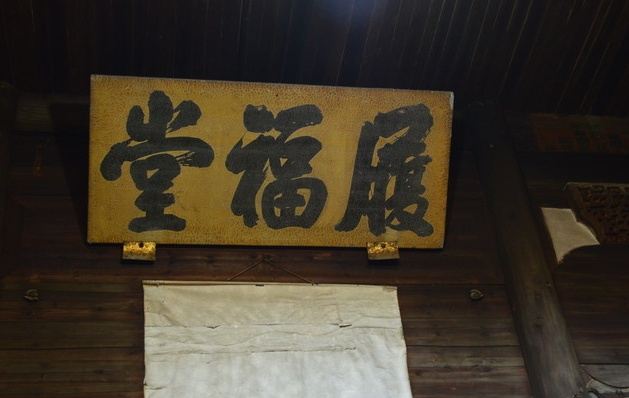 履福堂